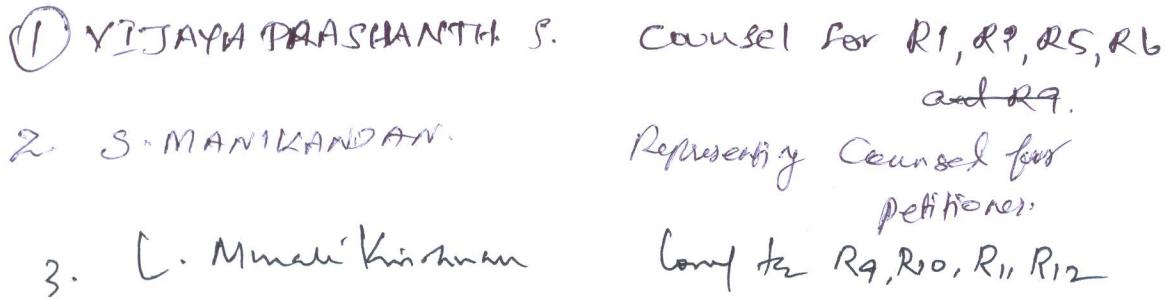 ① VIJAYA PRASHANTH. S. Counsel for R1, R5, R6
and R9.
2. S. MANIKANDAN. Representing Counsel for
petitioner.
3. L. Murali Krishnan for R9, R10, R11 R12